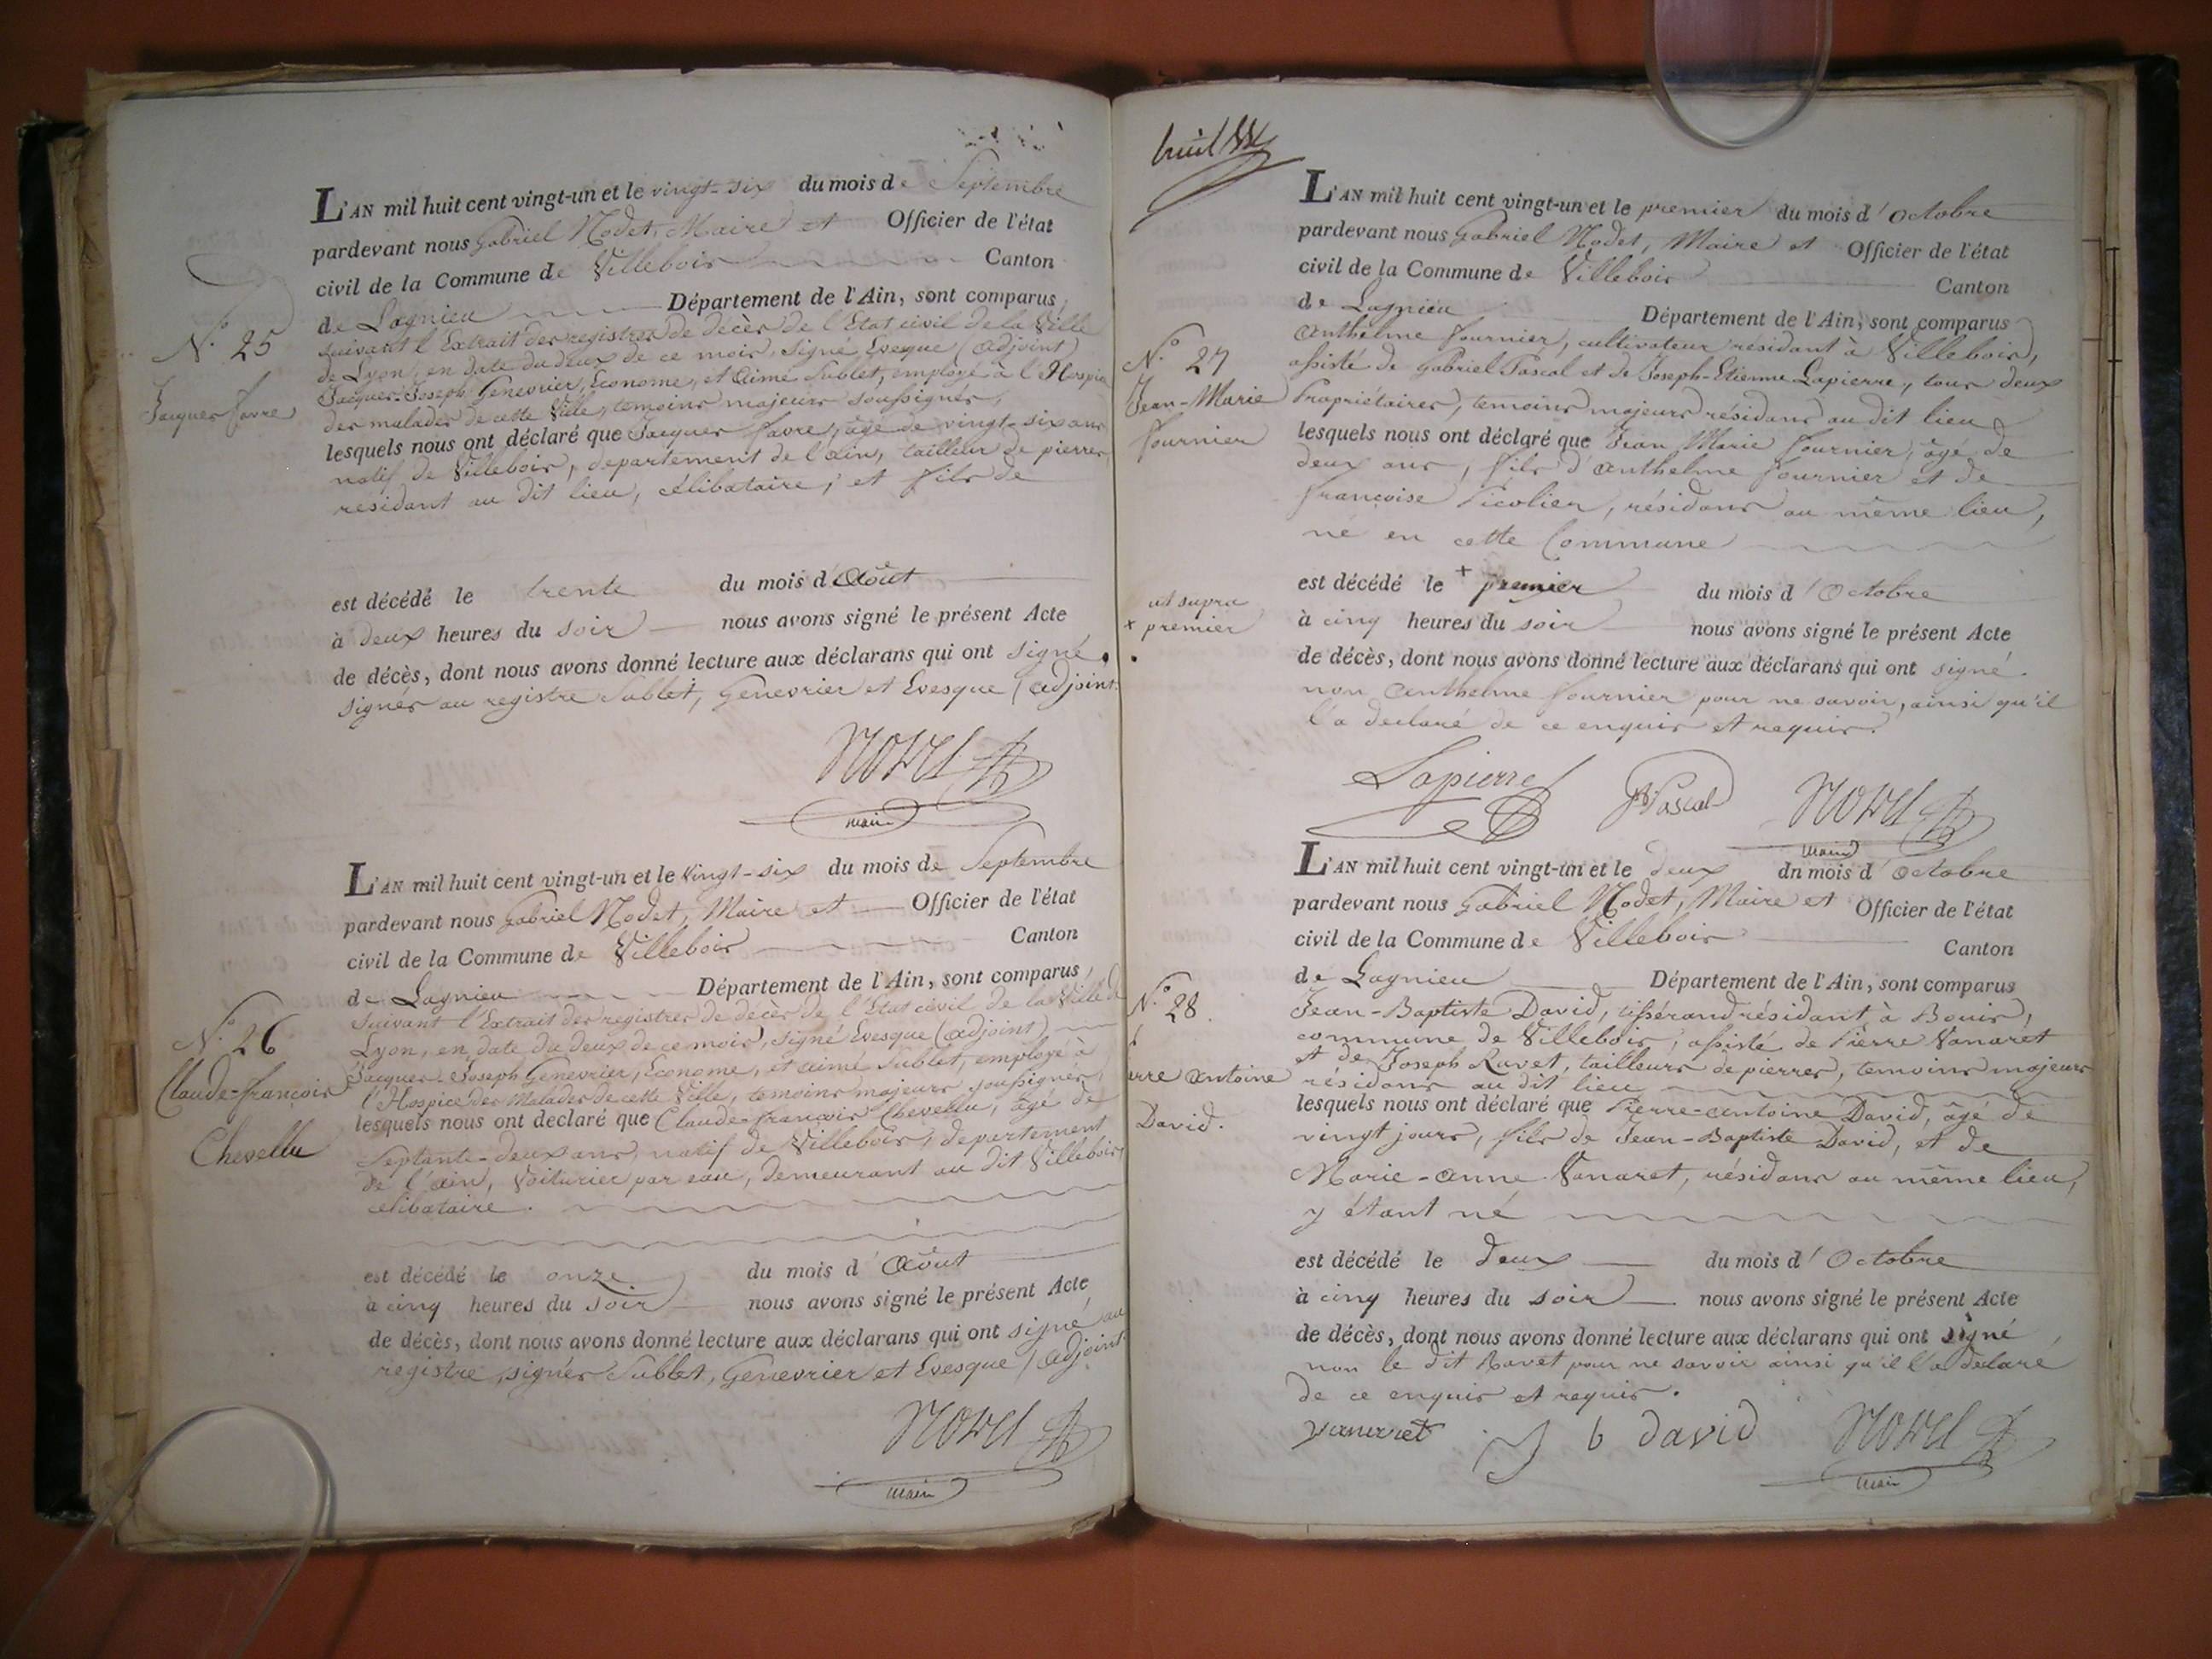 L'AN mil huit cent vingt-un et le vingt-six du mois de Septembre
pardevant nous Gabriel Nodet, Maire et Officier de l'état
civil de la Commune de Villebois Canton
de Lagnieu Département de l'Ain, sont comparus,
suivant l'Extrait des registres de décès de l'Etat civil de la Ville
de Lyon, en date du deux de ce mois, signé Evesque (adjoint)
Jacques-Joseph Genevrier, Econome, et Aimé Sublet, employé à l'Hospice
des malades de cette Ville, temoins majeurs soussignés,
lesquels nous ont déclaré que Jacques Favre, âgé de vingt-six ans
natif de Villebois, departement de l'ain, tailleur de pierres,
résidant au dit lieu, célibataire, et fils de
N.o 25
Jacques Favre
est décédé le trente du mois d'Août
à deux heures du soir nous avons signé le présent Acte
de décès, dont nous avons donné lecture aux déclarans qui ont signé
signés au registre Sublet, Genevrier et Evesque (adjoint
Nodet
maire
L'AN mil huit cent vingt-un et le vingt-six du mois de Septembre
pardevant nous Gabriel Nodet, Maire et Officier de l'état
civil de la Commune de Villebois Canton
de Lagnieu Département de l'Ain, sont comparus,
suivant l'Extrait des registres de décès de l'Etat civil de la Ville de
Lyon, en date du deux de ce mois, signé Evesque (adjoint)
Jacques-Joseph Genevrier, Econome, et aimé Sublet, employé à
l'Hospice des Malades de cette Ville, temoins majeurs soussignés,
lesquels nous ont declaré que Claude-françois Chevellu, âgé de
septante-deux ans, natif de Villebois, departement
de l'ain, Voiturier par eau, demeurant au dit Villebois,
célibataire.
N.o 26
Claude-françois
Chevellu
est décédé le onze du mois d'Août
à cinq heures du soir nous avons signé le présent Acte
de décès, dont nous avons donné lecture aux déclarans qui ont signé au
registre, signés Sublet, Genevrier et Evesque (adjoint
Nodet
maire
huit
L'AN mil huit cent vingt-un et le premier du mois d'Octobre
pardevant nous Gabriel Nodet, Maire et Officier de l'état
civil de la Commune de Villebois Canton
de Lagnieu Département de l'Ain, sont comparus
Anthelme fournier, cultivateur résidant à Villebois,
assisté de Gabriel Pascal et de Joseph-Etienne Lapierre, tous deux
Propriétaires, temoins majeurs résidans au dit lieu
lesquels nous ont déclaré que Jean Marie fournier, âgé de
deux ans, fils d'Anthelme fournier et de
françoise Picolier, résidans au même lieu,
né en cette Commune
N.o 27
Jean-Marie
fournier
est décédé le + premier du mois d'Octobre
à cinq heures du soir nous avons signé le présent Acte
de décès, dont nous avons donné lecture aux déclarans qui ont signé
non Anthelme fournier pour ne savoir, ainsi qu'il
l'a declaré de ce enquis et requis.
ut supra
x premier
Lapierre Pascal Nodet
maire
L'AN mil huit cent vingt-un et le deux dn mois d'Octobre
pardevant nous Gabriel Nodet, Maire et Officier de l'état
civil de la Commune de Villebois Canton
de Lagnieu Département de l'Ain, sont comparus
Jean-Baptiste David, tissérand résidant à Bouis,
commune de Villebois, assisté de Pierre Vanaret
et de Joseph Ravet, tailleurs de pierres, temoins majeurs
résidans au dit lieu
lesquels nous ont déclaré que Pierre-antoine David, âgé de
vingt jours, fils de Jean-Baptiste David, et de
Marie-anne Vanaret, résidans au même lieu,
y étant né
N.o 28
erre antoine
David.
est décédé le deux du mois d'Octobre
à cinq heures du soir nous avons signé le présent Acte
de décès, dont nous avons donné lecture aux déclarans qui ont signé
non le dit Ravet pour ne savoir ainsi qu'il l'a declaré
de ce enquis et requis.
vanaret J b david Nodet
maire